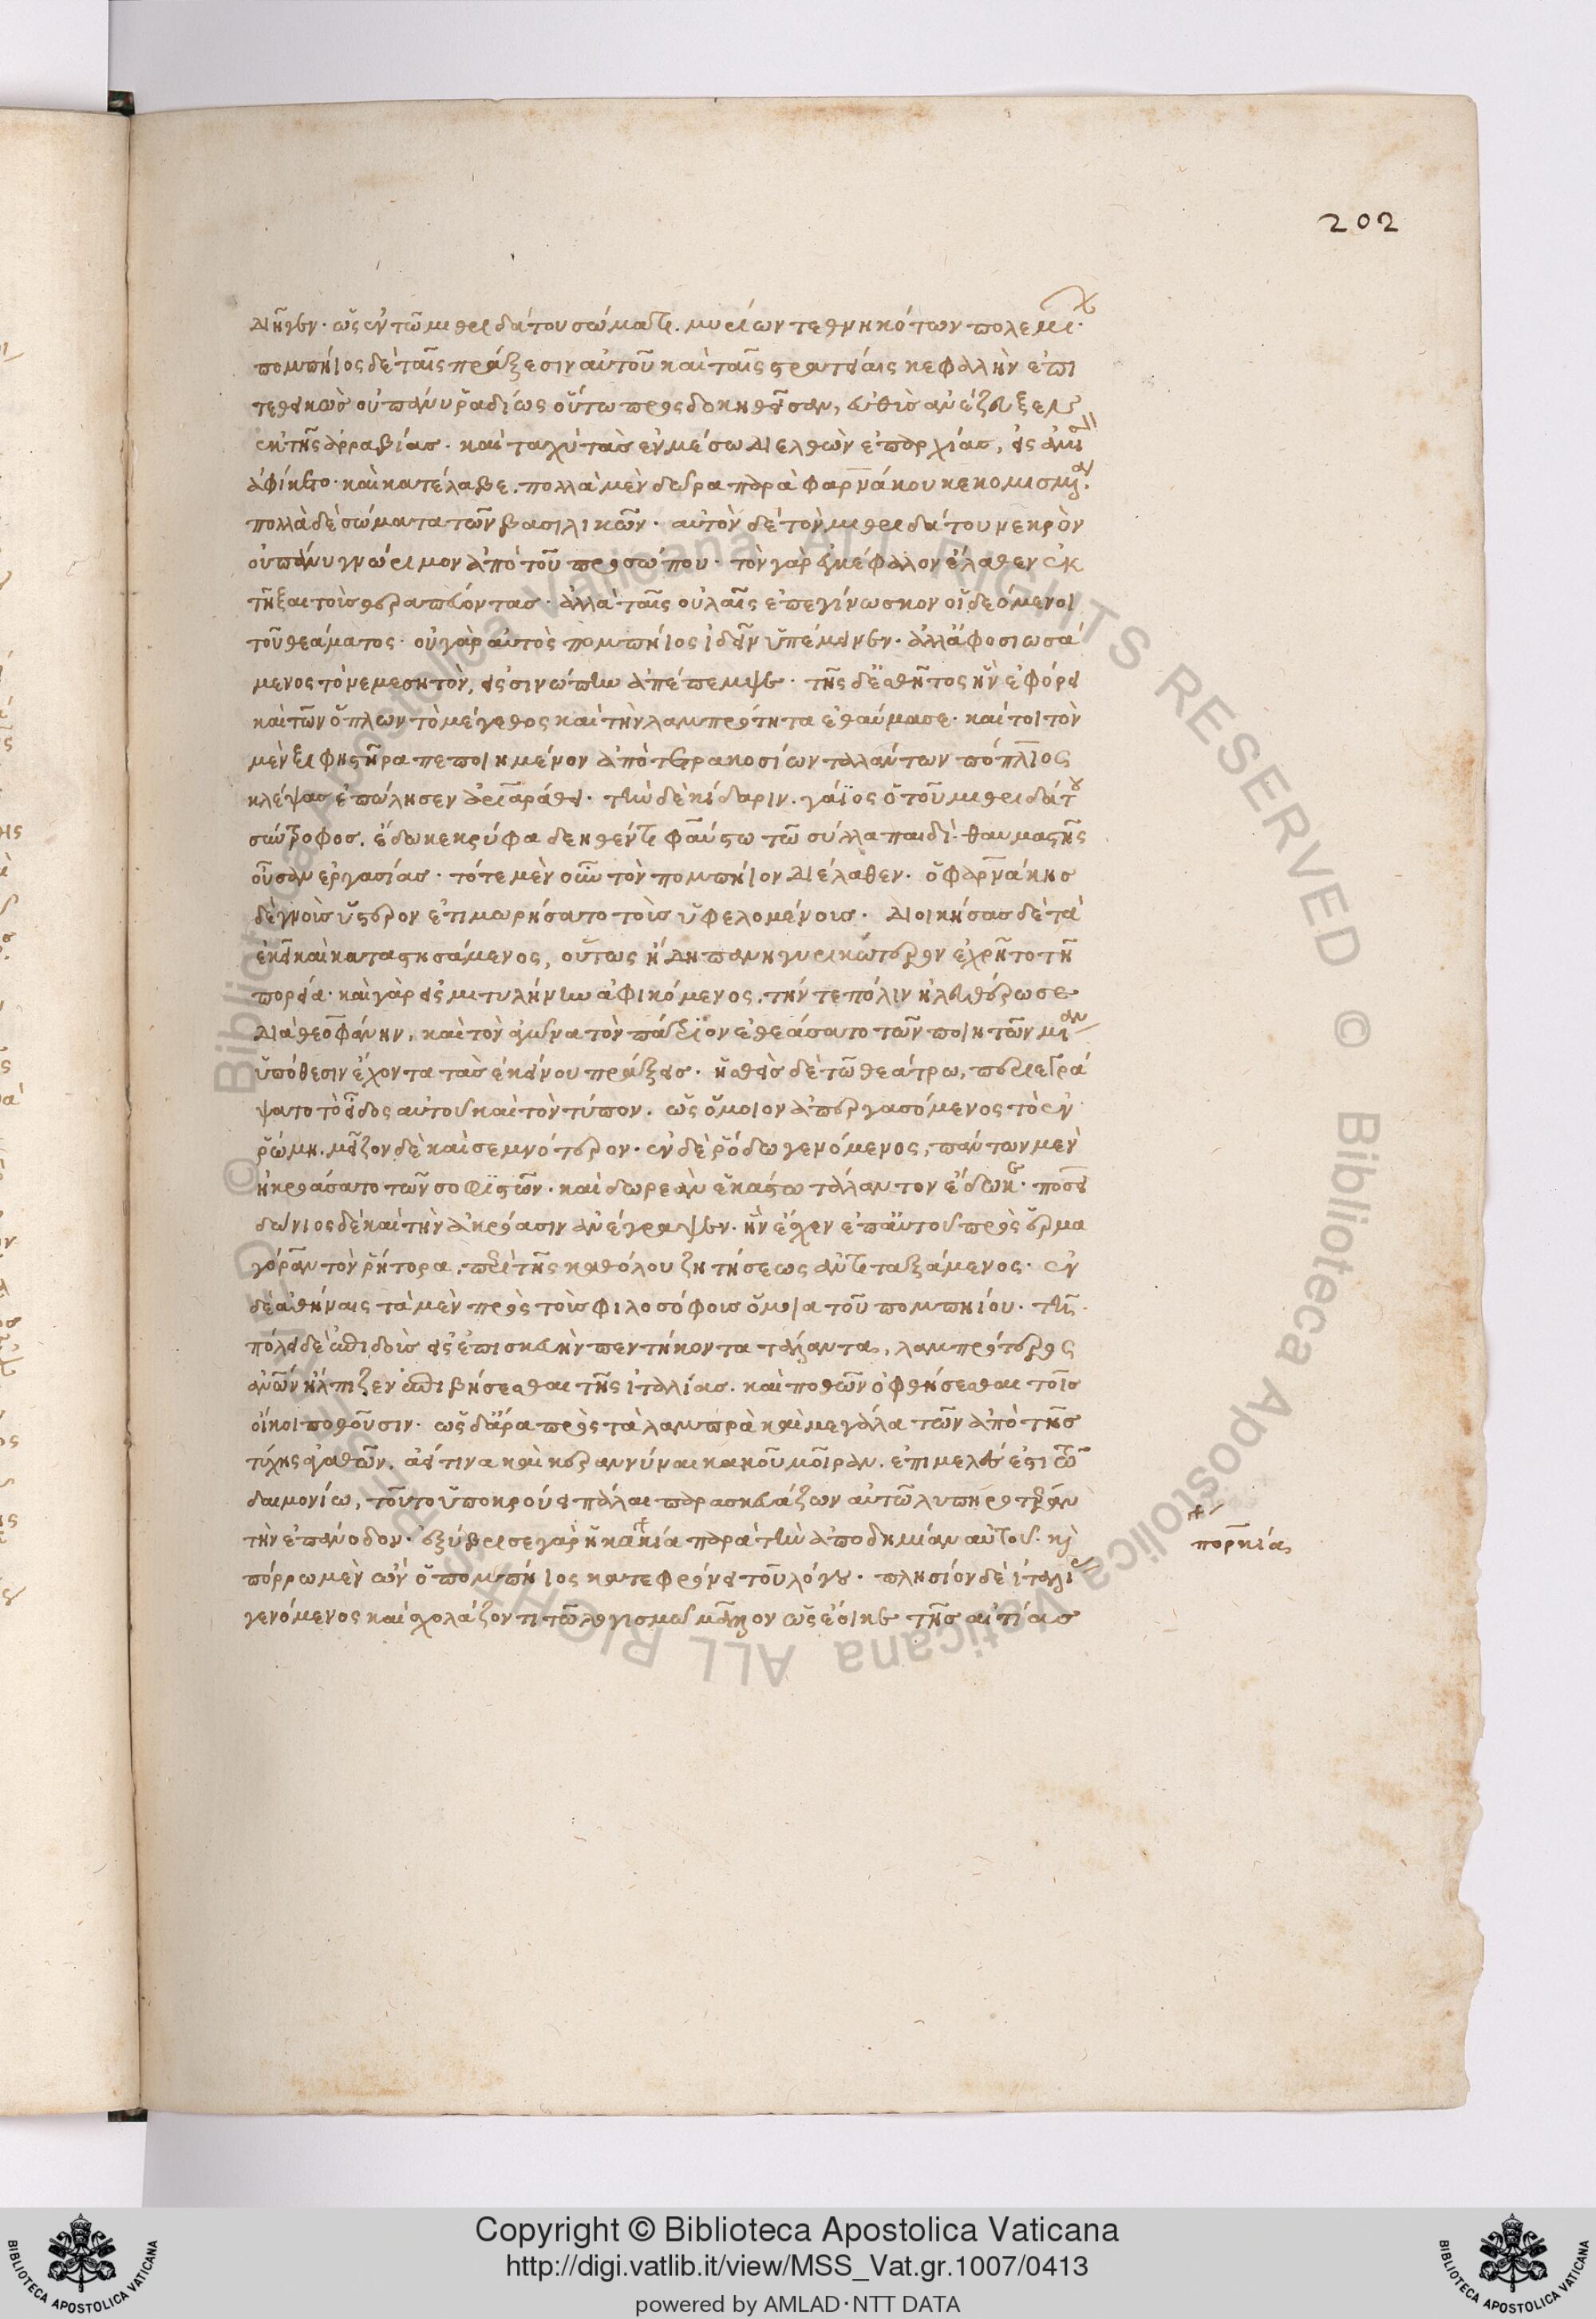 202
διῆγεν· ὡς ἐν τῶ μιθριδάτου σώματι. μυρίων τεθνηκότων πολεμίων·
πομπήϊος δὲ ταῖς πράξεσιν αὐτοῦ καὶ ταῖς στρατείαις κεφαλὴν ἐπι
τεθεικὼς οὐ πάνυ ῥαδίως οὕτω προσδοκηθεῖσαν, εὐθὺς ἀνέζευξεν
ἐκ τῆς ἀρραβίας. καὶ ταχὺ τὰς ἐν μέσω διελθὼν ἐπαρχίας, εἰς ἀμισὸν
ἀφίκετο· καὶ κατέλαβε. πολλὰ μὲν δῶρα παρὰ φαρνάκου κεκομισμένα.
πολλὰ δὲ σώματα τῶν βασιλικῶν· αὐτὸν δὲ τὸν μιθριδάτου νεκρὸν
οὐ πάνυ γνώριμον ἀπὸ τοῦ προσώπου· τὸν γὰρ ἐγκέφαλον ἔλαθεν ἐκ
τῆξαι τοὺς θεραπεύοντας· ἀλλὰ ταῖς οὐλαῖς ἐπεγίνωσκον οἱ δεόμενοι
τοῦ θεάματος· οὐ γὰρ αὐτὸς πομπήϊος ἰδεῖν ὑπέμεινεν· ἀλλ' ἀφοσιωσά
μενος τὸ νεμεσητὸν, εἰς σινώπην ἀπέπεμψε· τῆς δ' ἐσθῆτος ἣν ἐφόρει
καὶ τῶν ὅπλων τὸ μέγεθος καὶ τὴν λαμπρότητα ἐθαύμασε· καί τοι τὸν
μὲν ξιφηστῆρα πεποιημένον ἀπὸ τετρακοσίων ταλάντων πόπλιος
κλέψας ἐπώλησεν ἀριαράθει. τὴν δὲ κίδαριν. γάϊος ὁ τοῦ μιθριδάτου
σύντροφος. ἔδωκε κρύφα δεηθέντι φαύστω τῶ σύλλα παιδὶ. θαυμαστῆς
οὖσαν ἐργασίας· τότε μὲν οὖν τὸν πομπήϊον διέλαθεν· ὁ φαρνάκης
δὲ γνοὺς ὕστερον ἐτιμωρήσατο τοὺς ὑφελομένους. διοικήσας δὲ τὰ
ἐκεῖ καὶ καταστησάμενος, οὕτως ἤδη πανηγυρικώτερον ἐχρῆτο τῆ
πορεία· καὶ γὰρ εἰς μιτυλήνην ἀφικόμενος. τήν τε πόλιν ἠλευθέρωσε
διὰ θεοφάνην, καὶ τὸν ἀγῶνα τὸν πάτριον ἐθεάσατο τῶν ποιητῶν μίαν
ὑπόθεσιν ἔχοντα τὰς ἐκείνου πράξεις. ἡσθεὶς δὲ τῶ θεάτρω, περιεγρά
ψατο τὸ εἶδος αὐτοῦ καὶ τὸν τύπον. ὡς ὅμοιον ἀπεργασόμενος τὸ ἐν
ῥώμη. μεῖζον δὲ καὶ σεμνότερον· ἐν δὲ ῥόδω γενόμενος, πάντων μὲν
ἠκροάσατο τῶν σοφϊστῶν· καὶ δωρεὰν ἑκάστω τάλαντον ἔδωκε· ποσει
δώνιος δὲ καὶ τὴν ἀκρόασιν ἀνέγραψεν. ἣν ἔσχεν ἐπ' αὐτοῦ πρὸς ἑρμα
γόραν τὸν ῥήτορα. περὶ τῆς καθόλου ζητήσεως ἀντιταξάμενος· ἐν
δὲ ἀθήναις τὰ μὲν πρὸς τοὺς φιλοσόφους ὅμοια τοῦ πομπηίου. τῆ
πόλει δὲ ἐπιδοὺς εἰς ἐπισκευὴν πεντήκοντα τάλαντα, λαμπρότερος
ἀνθρώπων ἤλπιζεν ἐπιβήσεσθαι τῆς ἰταλίας. καὶ ποθῶν ὀφθήσεσθαι τοῖς
οἴκοι ποθοῦσιν· ὡς δ' ἄρα πρὸς τὰ λαμπρὰ καὶ μεγάλα τῶν ἀπὸ τῆς
τύχης ἀγαθῶν. ἀεί τινα καὶ κεραννύναι κακοῦ μοῖραν. ἐπιμελές ἐστι τῶ
δαιμονίω, τοῦτο ὑποκρούει πάλαι παρασκευάζων αὐτῶ λυπηροτέραν
τὴν ἐπάνοδον· ἐξύβρισε γὰρ ἡ μουκία παρὰ τὴν ἀποδημίαν αὐτοῦ. καὶ
πορνεία,
πόρρω μὲν ὢν ὁ πομπήϊος κατεφρόνει τοῦ λόγου· πλησίον δὲ ἰταλίας
γενόμενος καὶ σχολάζοντι τῶ λογισμῶ μᾶλλον ὡς ἔοικε τῆς αἰτίας
Copyright © Biblioteca Apostolica Vaticana
http://digi.vatlib.it/view/MSS_Vat.gr.1007/0413
powered by AMLAD·NTT DATA
BIBLIOTECA APOSTOLICA VATICANA
BIBLIOTECA APOSTOLICA VATICANA
© Biblioteca Apostolica Vaticana ALL RIGHTS RESERVED © Biblioteca Apostolica Vaticana ALL RIGHTS RESERVED